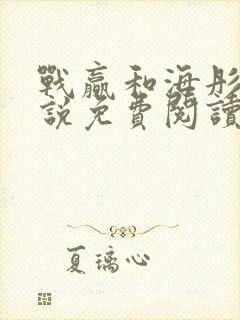 戰贏和海彤
說免費閱讀
夏璃心